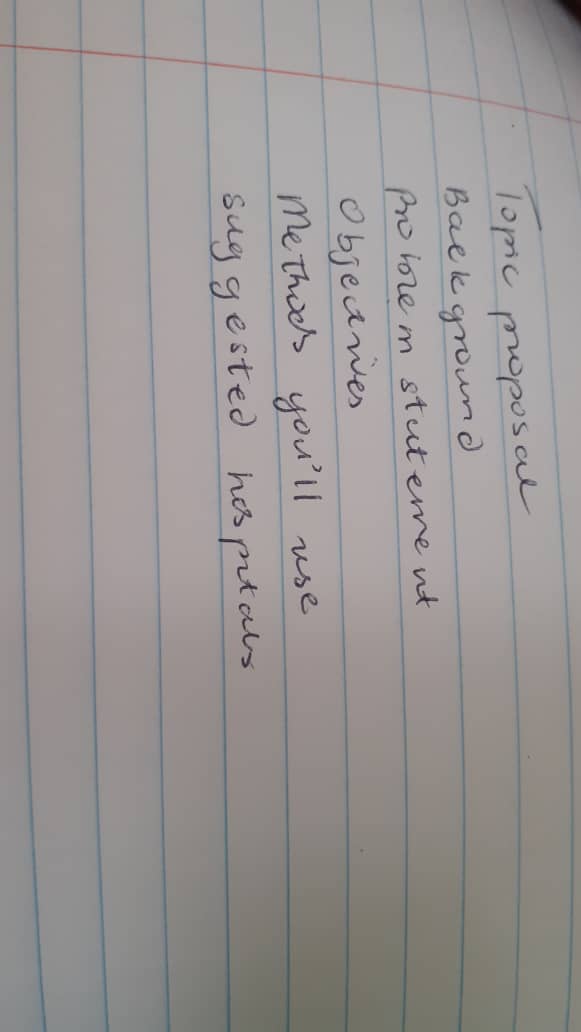 Topic proposal
Background
Problem statement
Objectives
Methods you'll use
suggested hospitals